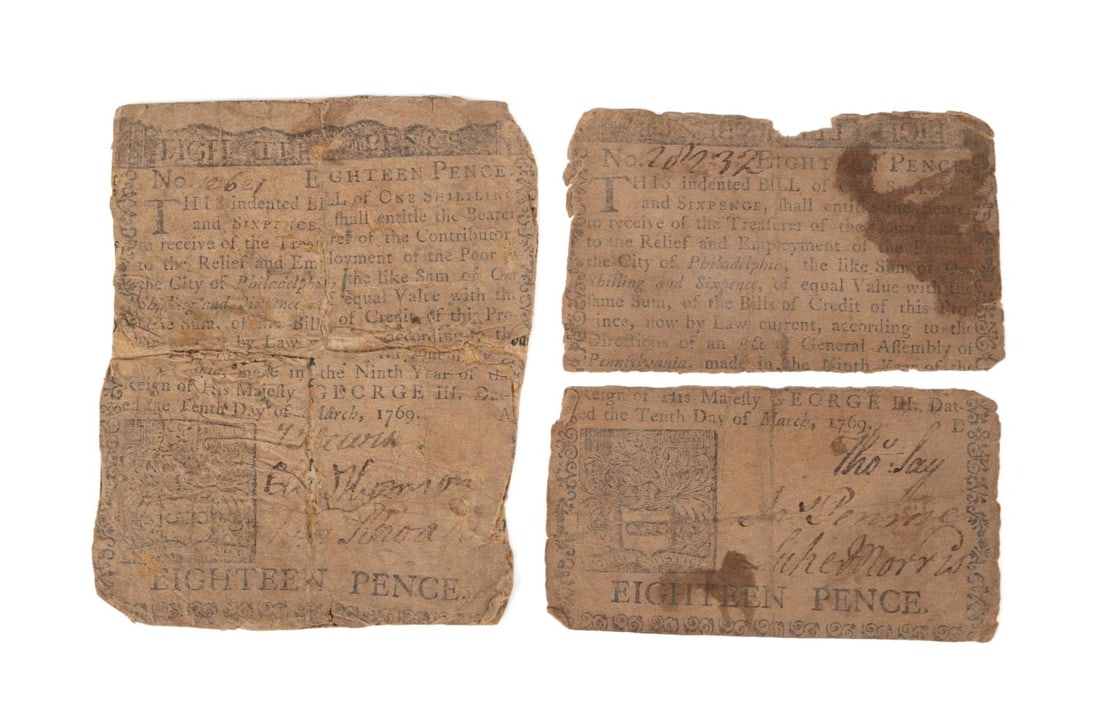 EIGHTEEN PENCE
No. 2621 EIGHTEEN PENCE.
THIS indented BILL of ONE SHILLING
and SIXPENCE, shall entitle the Bearer
to receive of the Treasurer of the Contributor
to the Relief and Employment of the Poor
the City of Philadelphia, the like Sum of One
Shilling and Sixpence, of equal Value with the
same Sum, of the Bills of Credit of this Pro-
by Law according to the
made in the Ninth Year of the
Reign of His Majesty GEORGE III. Dat-
ed the Tenth Day of March, 1769. A
Thomson
Rhoa
EIGHTEEN PENCE.
No. 20232 EIGHTEEN PENCE.
THIS indented BILL of SHILLING
and SIXPENCE, shall entitle the Bearer
to receive of the Treasurer of the Contributors
to the Relief and Employment of the Poor
the City of Philadelphia, the like Sum of One
Shilling and Sixpence, of equal Value with the
same Sum, of the Bills of Credit of this Pro-
vince, now by Law current, according to the
Directions of an Act of General Assembly of
Pennsylvania, made in the Ninth of the
Reign of His Majesty GEORGE III. Dat-
ed the Tenth Day of March, 1769. D
Tho.s Say
Jas Penrose
Luke Morris
EIGHTEEN PENCE.